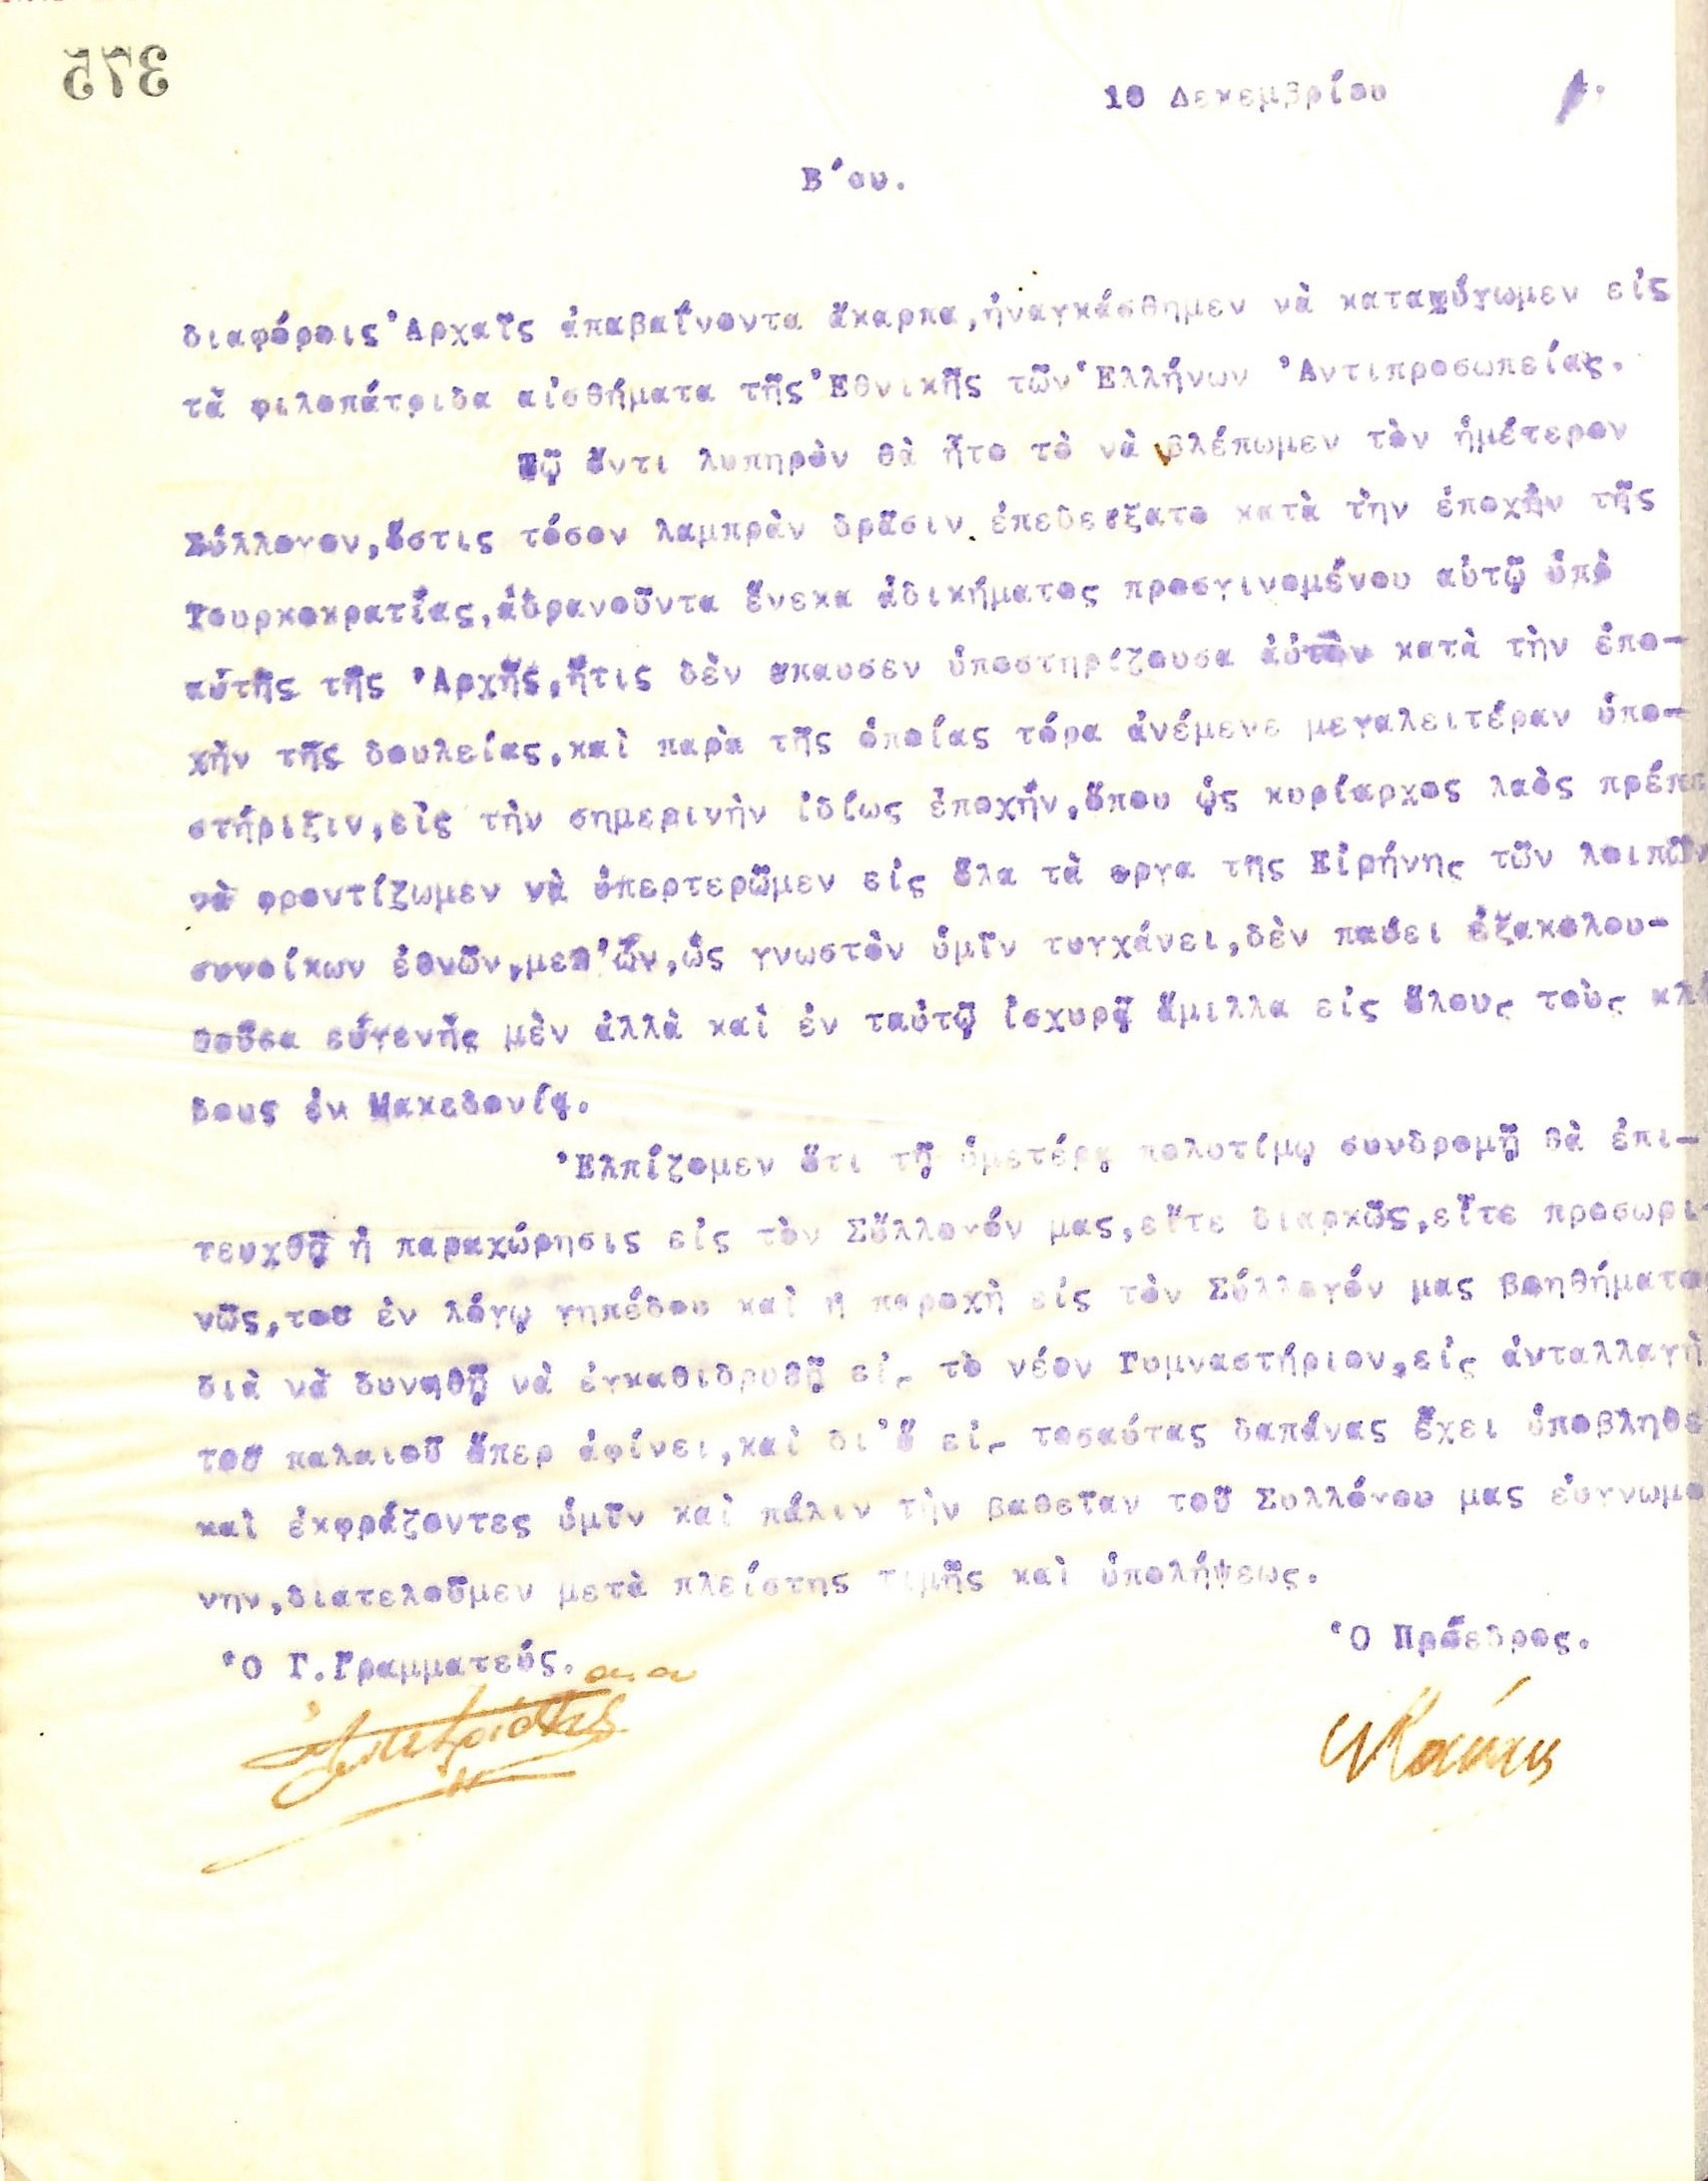 375
10 Δεκεμβρίου
Β΄ου.
διαφόροις Ἀρχαῖς ἀπαβαίνοντα ἄκαρπα, ἠναγκάσθημεν νὰ καταφύγωμεν εἰς
τὰ φιλοπάτριδα αἰσθήματα τῆς Ἐθνικῆς τῶν Ἑλλήνων Ἀντιπροσωπείας.
Τῷ ὄντι λυπηρὸν θὰ ἦτο τὸ νὰ βλέπωμεν τὸν ἡμέτερον
Σύλλογον, ὅστις τόσον λαμπρὰν δρᾶσιν ἐπεδείξατο κατὰ τὴν ἐποχὴν τῆς
Τουρκοκρατίας, ἀδρανοῦντα ἕνεκα ἀδικήματος προσγινομένου αὐτῷ ὑπὸ
αὐτῆς τῆς Ἀρχῆς, ἥτις δὲν ἔπαυσεν ὑποστηρίζουσα αὐτὸν κατὰ τὴν ἐπο-
χὴν τῆς δουλείας, καὶ παρὰ τῆς ὁποίας τόρα ἀνέμενε μεγαλειτέραν ὑπο-
στήριξιν, εἰς τὴν σημερινὴν ἰδίως ἐποχήν, ὅπου ὡς κυρίαρχος λαὸς πρέπε
νὰ φροντίζωμεν νὰ ὑπερτερῶμεν εἰς ὅλα τὰ εργα τῆς Εἰρήνης τῶν λοιπῶν
συνοίκων ἐθνῶν, μεθ' ὧν, ὡς γνωστὸν ὑμῖν τυγχάνει, δὲν παύει ἐξακολου-
θοῦσα εὐγενὴς μὲν ἀλλὰ καὶ ἐν ταὐτῷ ἰσχυρᾷ ἅμιλλα εἰς ὅλους τοὺς κλά
δους ἐν Μακεδονίᾳ.
Ἐλπίζομεν ὅτι τῇ ὑμετέρᾳ πολυτίμῳ συνδρομῇ θὰ ἐπι-
τευχθῇ ἡ παραχώρησις εἰς τὸν Σύλλογόν μας, εἴτε διαρκῶς, εἴτε προσωρι-
νῶς, τοῦ ἐν λόγῳ γηπέδου καὶ ἡ παροχὴ εἰς τὸν Σύλλογόν μας βοηθήματο
διὰ νὰ δυνηθῇ νὰ ἐγκαθιδρυθῇ εἰς τὸ νέον Γυμναστήριον, εἰς ἀνταλλαγὴ
τοῦ παλαιοῦ ὅπερ ἀφίνει, καὶ δι' ὃ εἰς τοσαύτας δαπάνας ἔχει ὑποβληθε
καὶ ἐκφράζοντες ὑμῖν καὶ πάλιν τὴν βαθεῖαν τοῦ Συλλόγου μας εὐγνωμο
νην, διατελοῦμεν μετὰ πλείστης τιμῆς καὶ ὑπολήψεως.
Ὁ Πρόεδρος.
Ὁ Γ. Γραμματεύς.